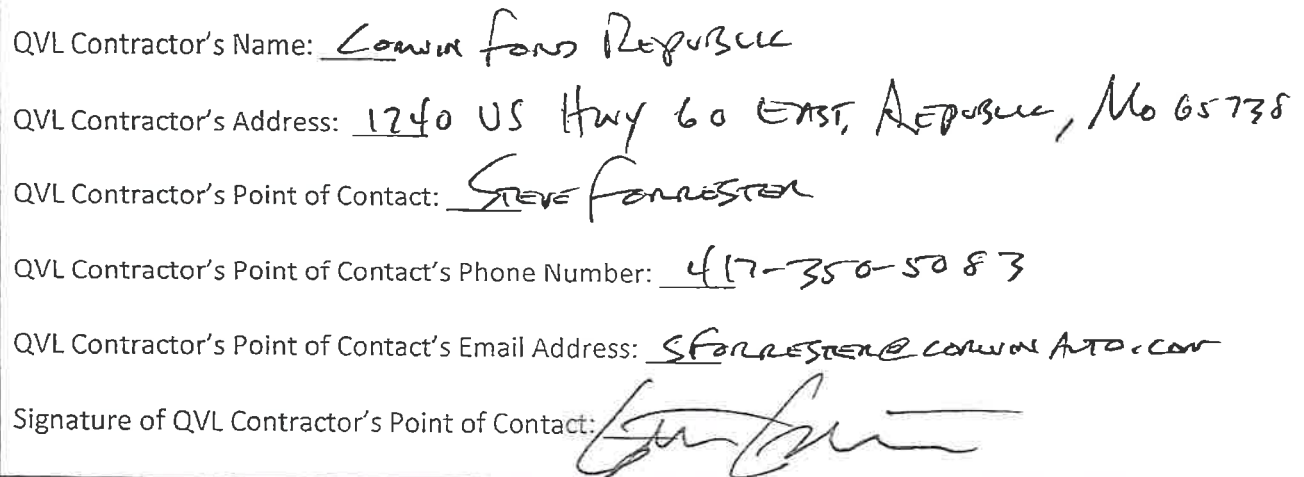 QVL Contractor's Name: Corwin Ford Republic
QVL Contractor's Address: 1240 US Hwy 60 EAST, REPUBLIC, Mo 65738
QVL Contractor's Point of Contact: STEVE FORRESTER
QVL Contractor's Point of Contact's Phone Number: 417-350-5083
QVL Contractor's Point of Contact's Email Address: SFORRESTER@CORWINAUTO.COM
Signature of QVL Contractor's Point of Contact: